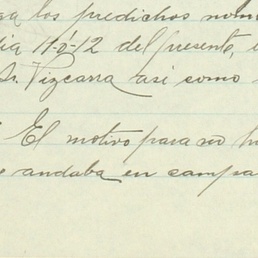 los predichos nom
dia 11 ó 12 del presente,
Sr. Vizcarra asi como
El motivo para no
andaba en campa